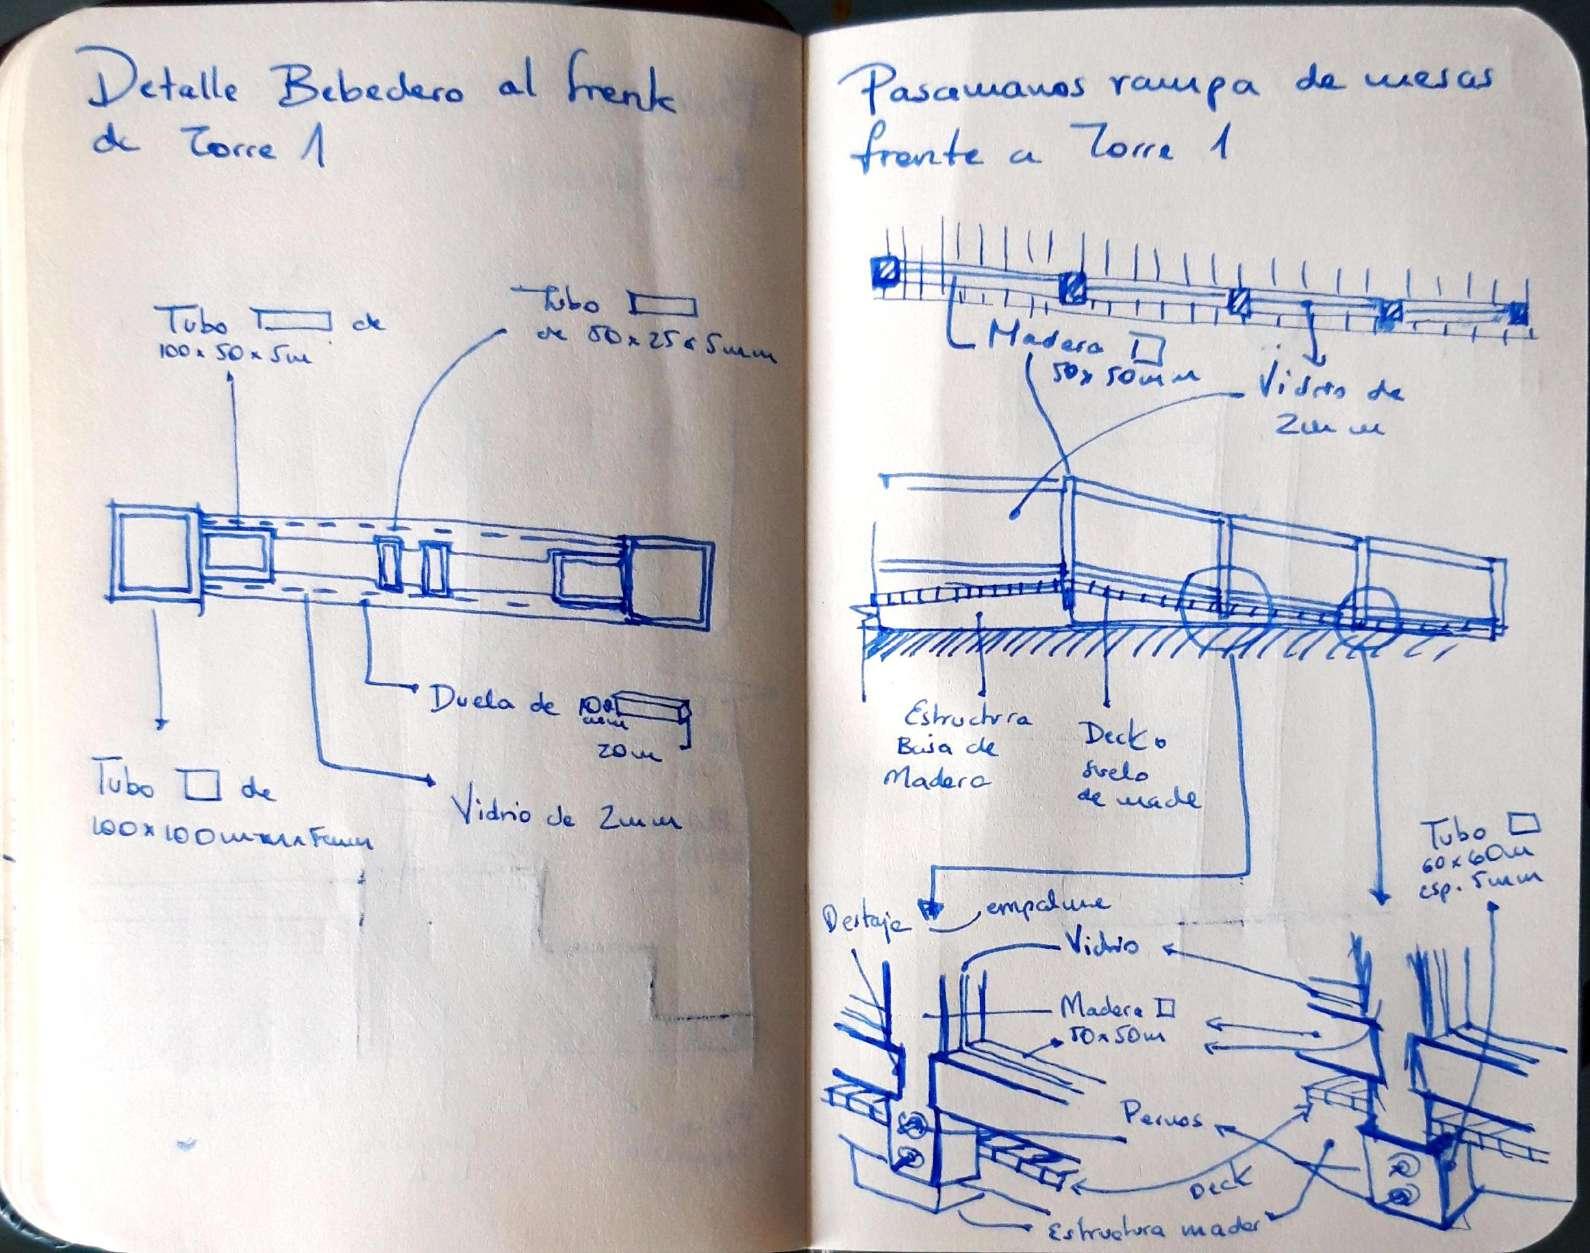 Detalle Bebedero al frente
de Torre 1
Tubo de
100x50x5m
Tubo
de 50x25x5mm
Duela de
20m
Tubo de
100x100mmx5mm
Vidrio de 2mm
Pasamanos rampa de mesas
frente a Torre 1
Madera
50x50mm
Vidrio de
2mm
Estructura
Baja de
Madera
Deck o
suelo
de made
Tubo
60x60m
esp. 5mm
Destaje
empalme
Vidrio
Madera
50x50m
Pernos
Deck
Estructura mader